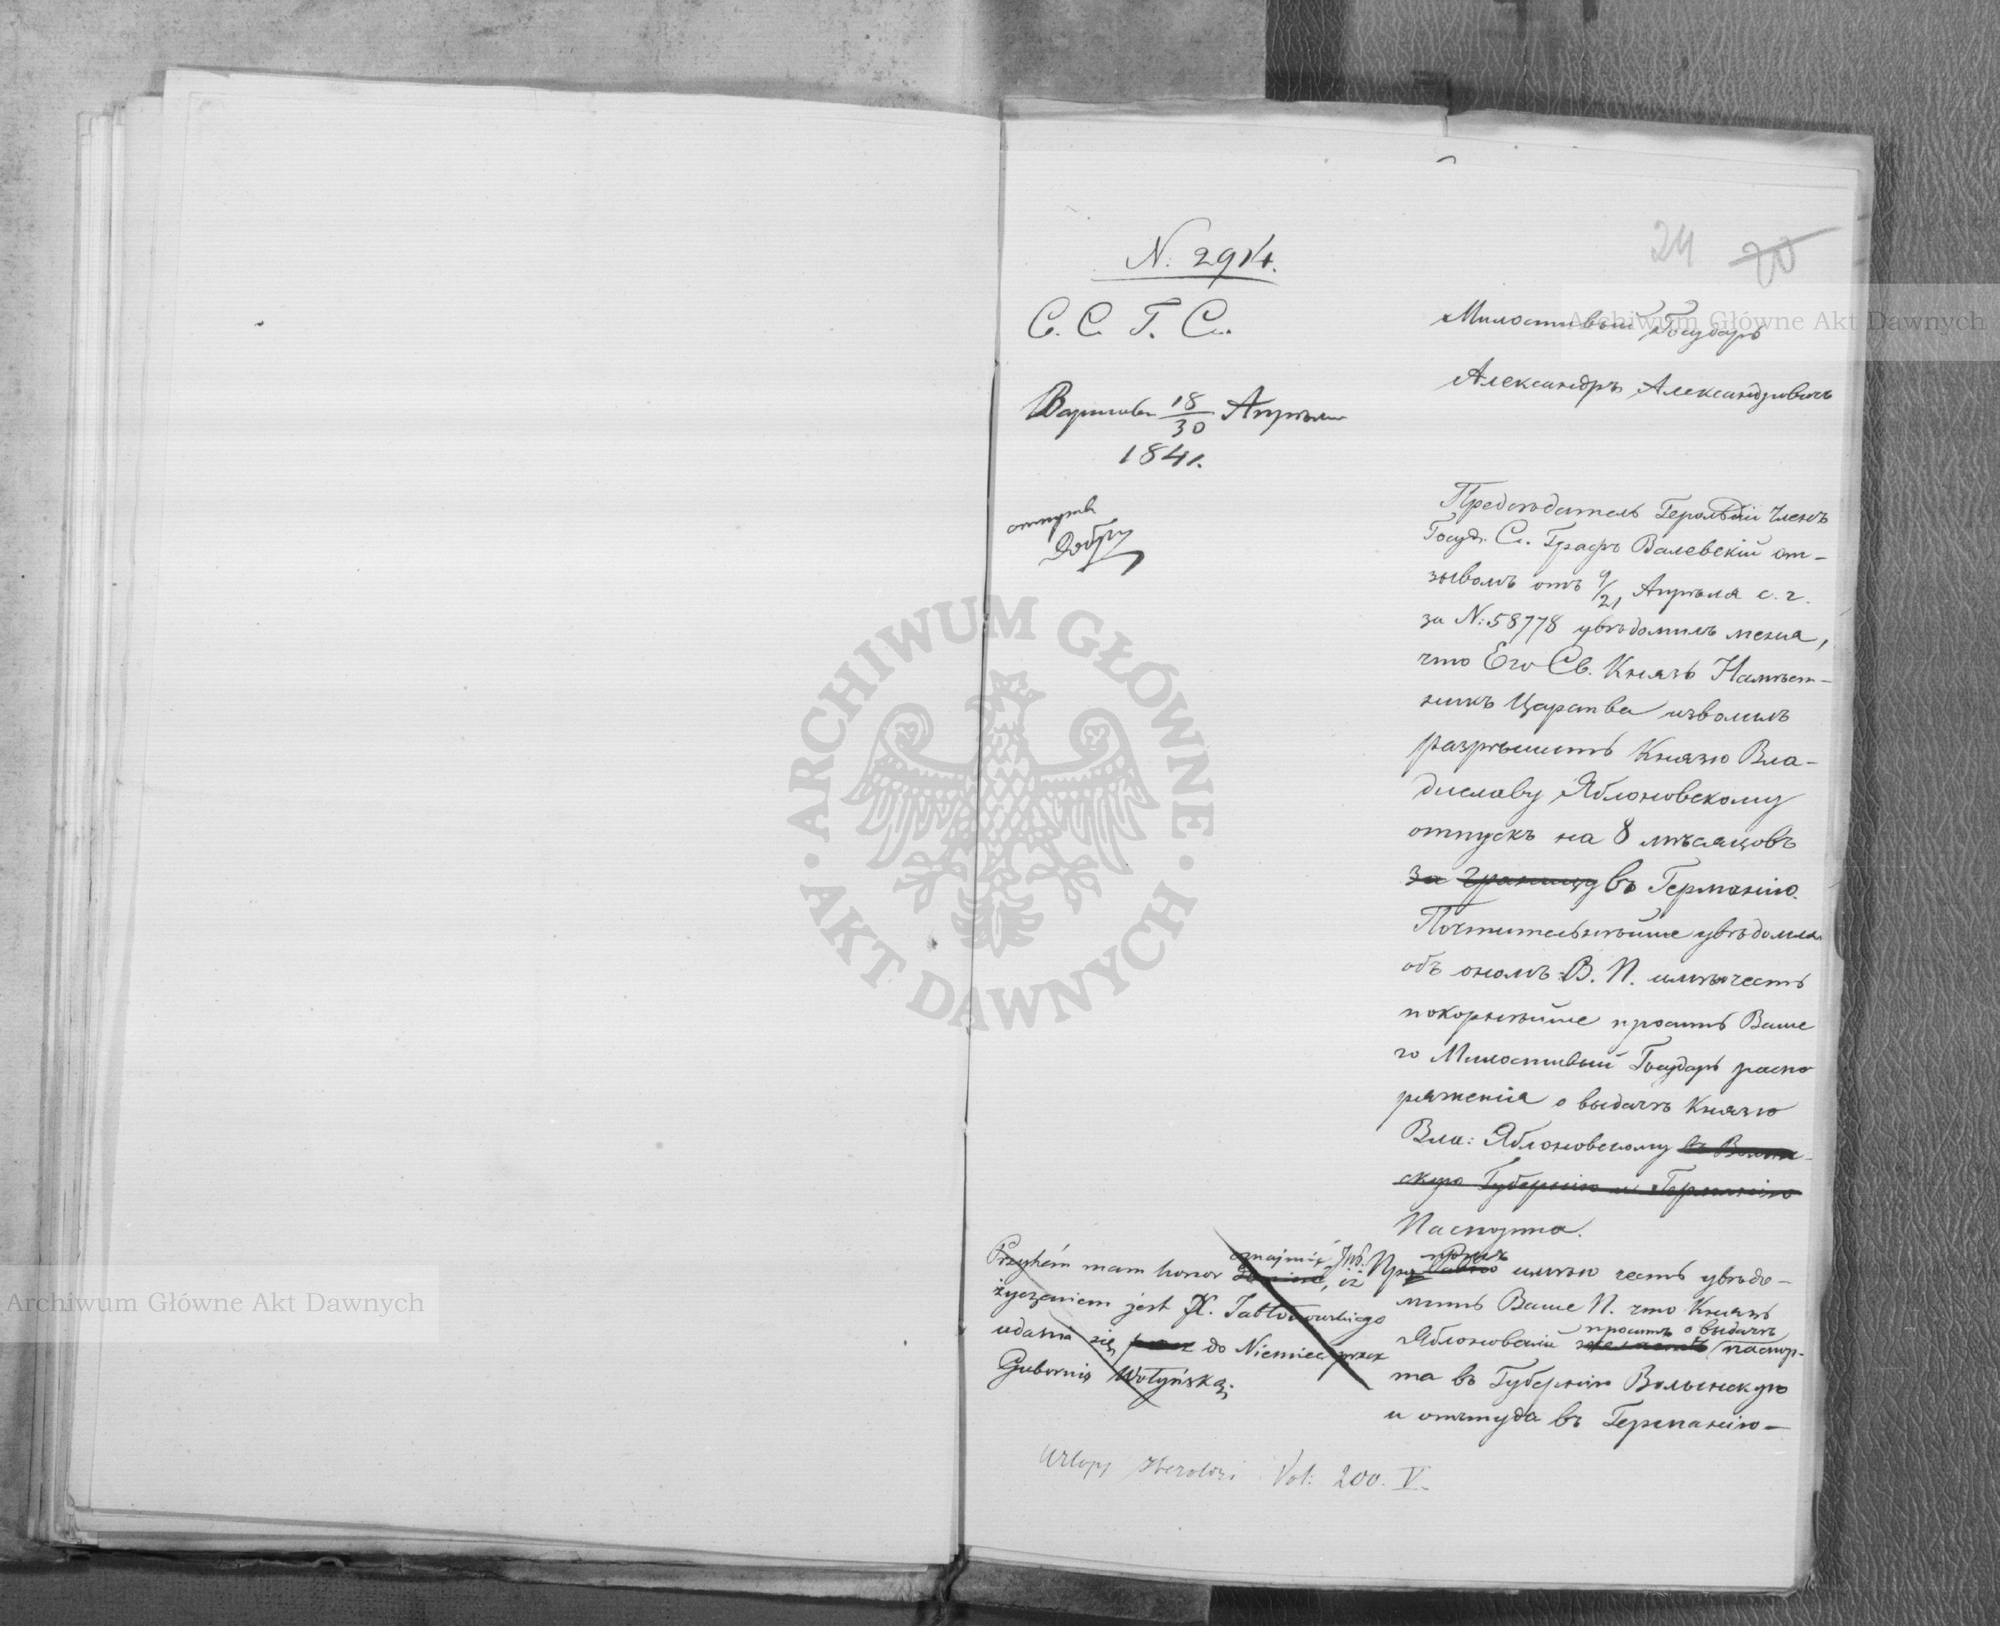 24 20
N: 2914.
С. С. Г. С.
Варшава 18/30 Апрѣля
1841.
Милостивый Государь
Александръ Александровичъ
Предсѣдатель Герольдіи Членъ
Госуд. С. Графъ Валевскій от-
зывомъ отъ 9/21 Апрѣля с. г.
за N: 58778 увѣдомилъ меня,
что Его Св. Князь Намѣст-
никъ Царства изволилъ
разрѣшить Князю Вла-
диславу Яблоновскому
отпускъ на 8 мѣсяцовъ
за границу въ Германію.
Почтительнѣйше увѣдомляя
объ ономъ В. П. имѣю честь
покорнѣйше просить Ваше
го Милостивый Государь распо
ряженія о выдачѣ Князю
Вла: Яблоновскому въ Волын-
скую Губернію и Германію
Паспорта.
При имѣю честь увѣдо-
мить Ваше П. что Князь
просить о выдачѣ
Яблоновскій желаетъ паспор-
та въ Губернію Волынскую
и оттуда въ Германію—
oznajmić
Przytém mam honor , iż
życzeniem jest X. Jabłonowskiego
udania się do Niemiec przez
Gubernię Wołyńską.
Urlopy Heroldyi Vol: 200. V.
Archiwum Główne Akt Dawnych
Archiwum Główne Akt Dawnych
ARCHIWUM GŁÓWNE
AKT DAWNYCH